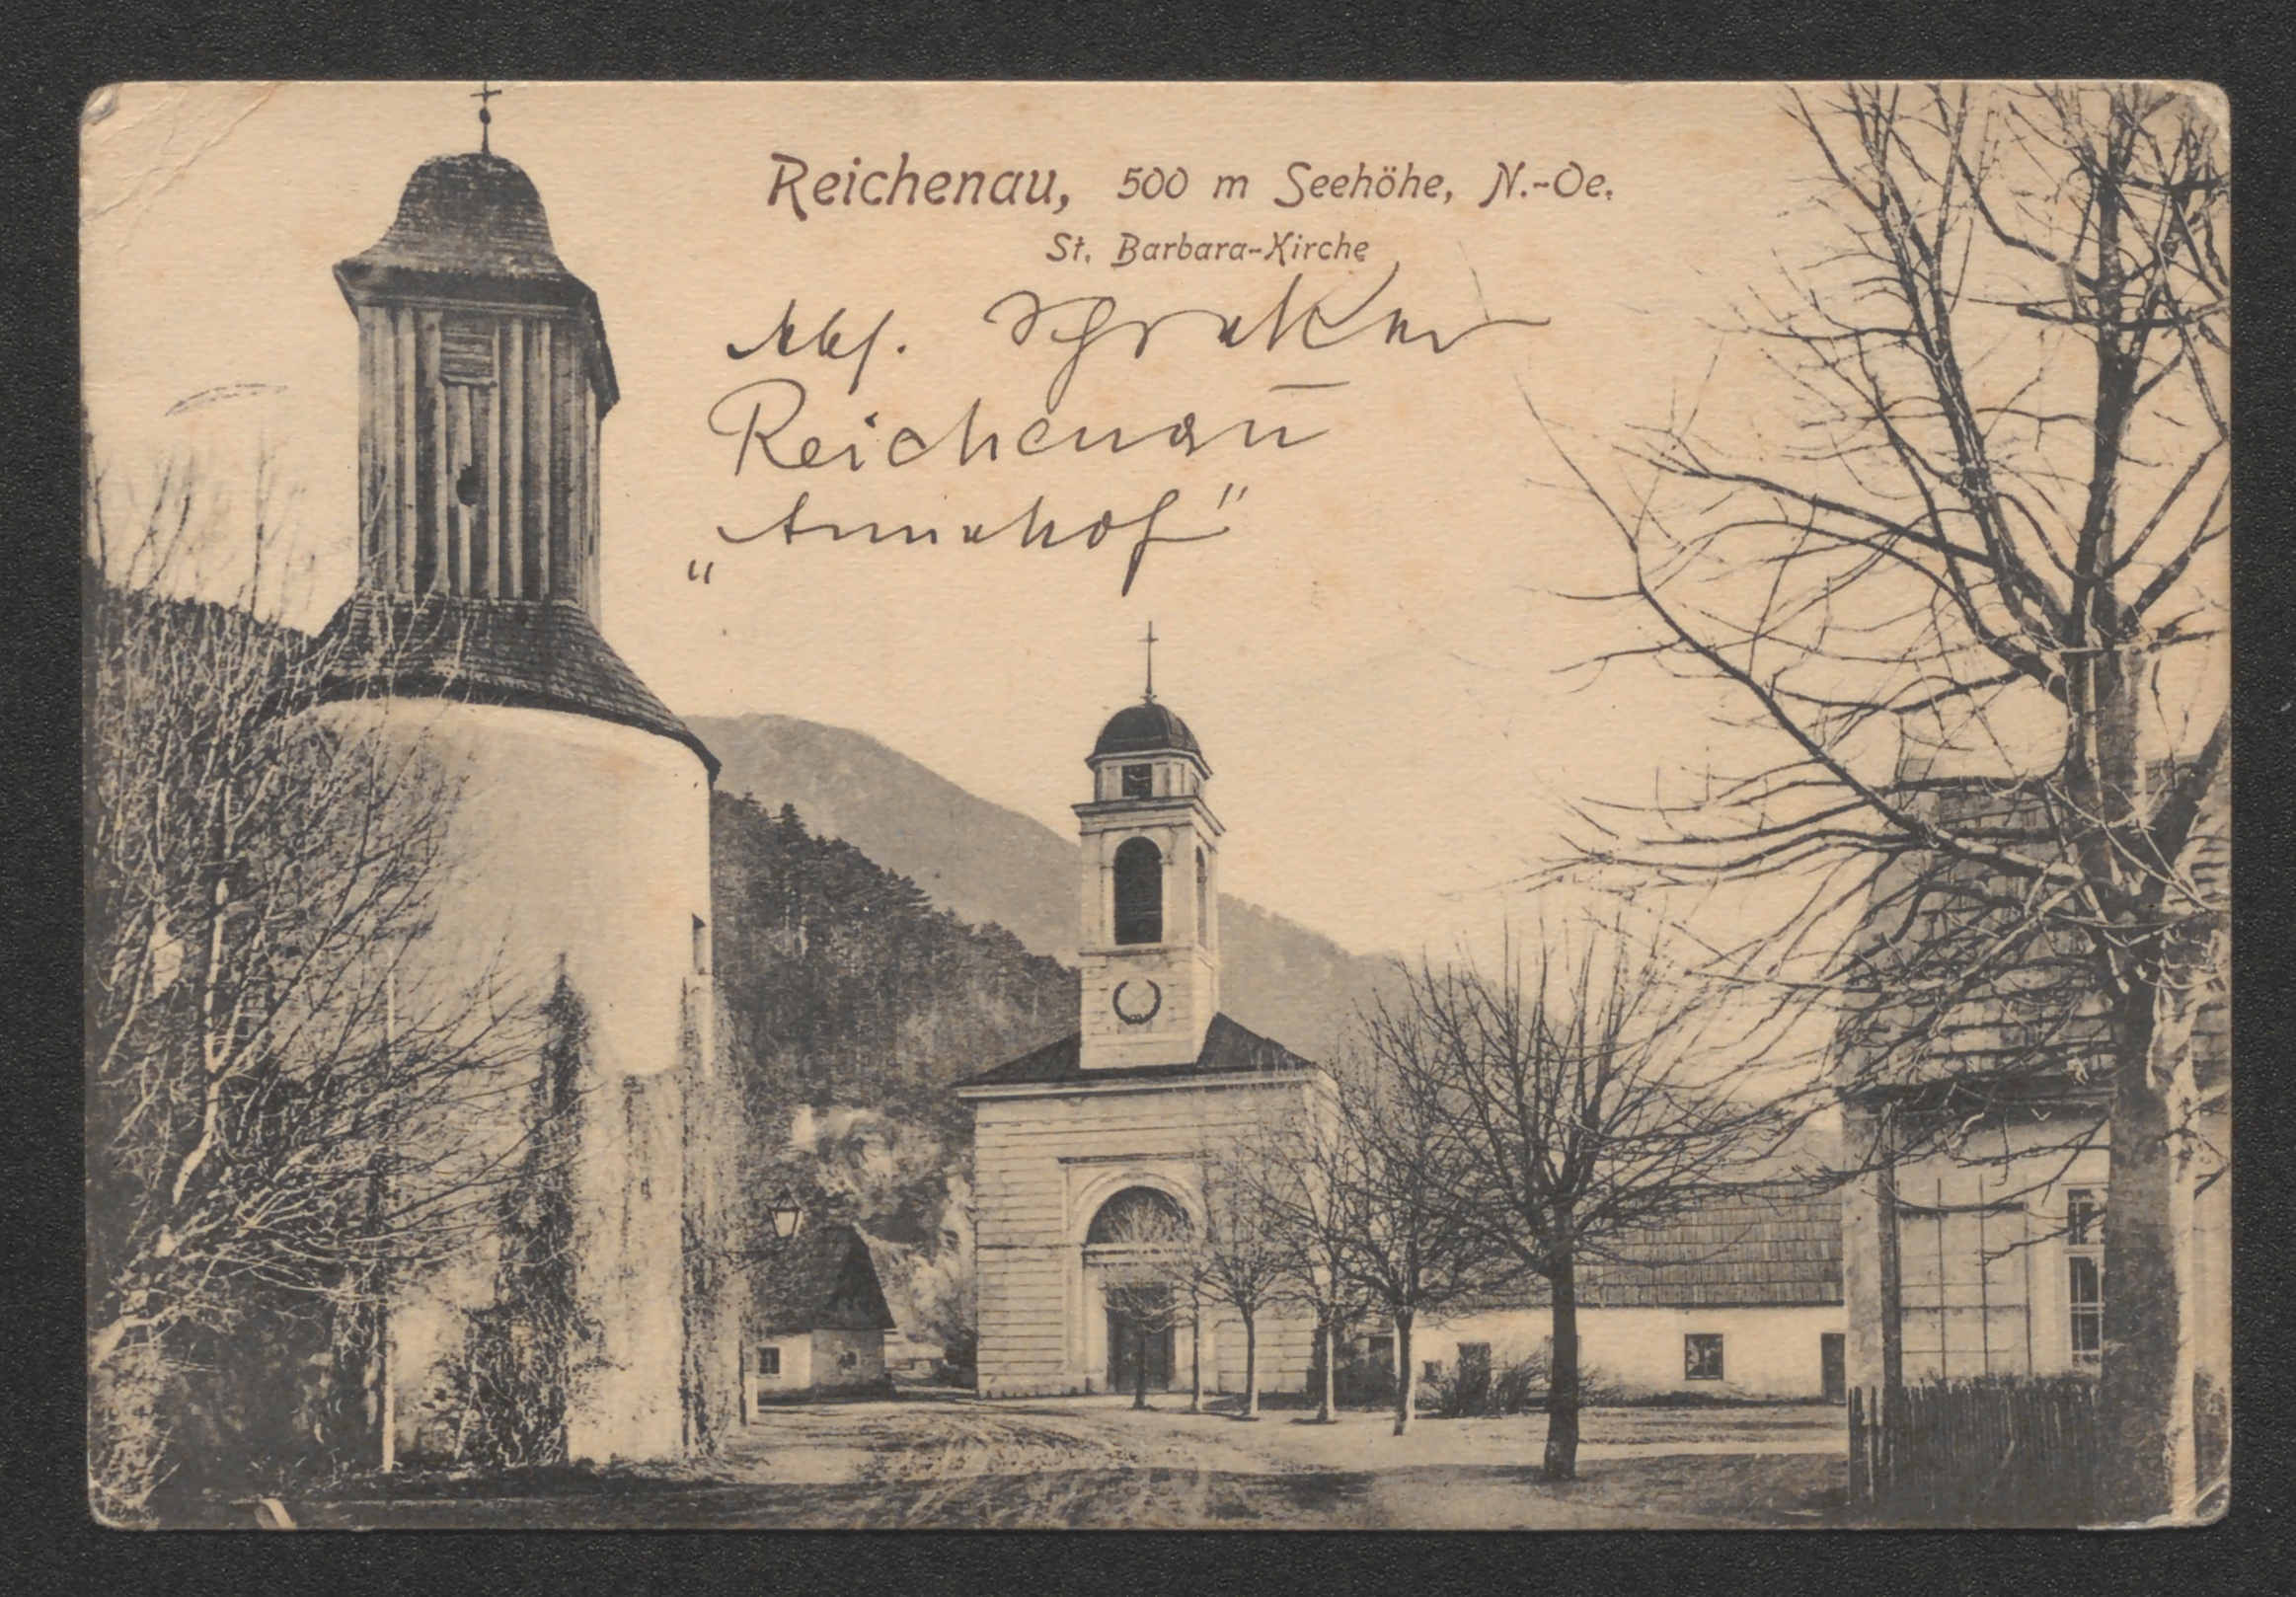 Reichenau, 500 m Seehöhe, N.-Oe.
St. Barbara-Kirche
Abs. Schreker
Reichenau
„Annahof"